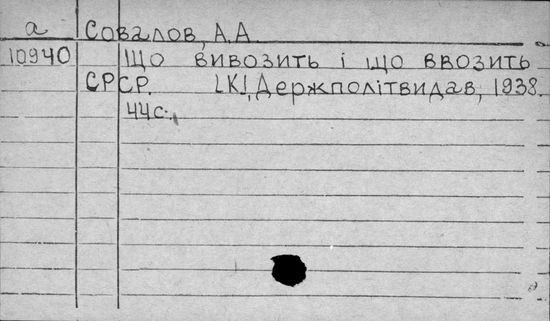 а Совалов, А.А.
10940 Що вивозить і що ввозить
СРСР. [К], Держполітвидав, 1938.
44с.